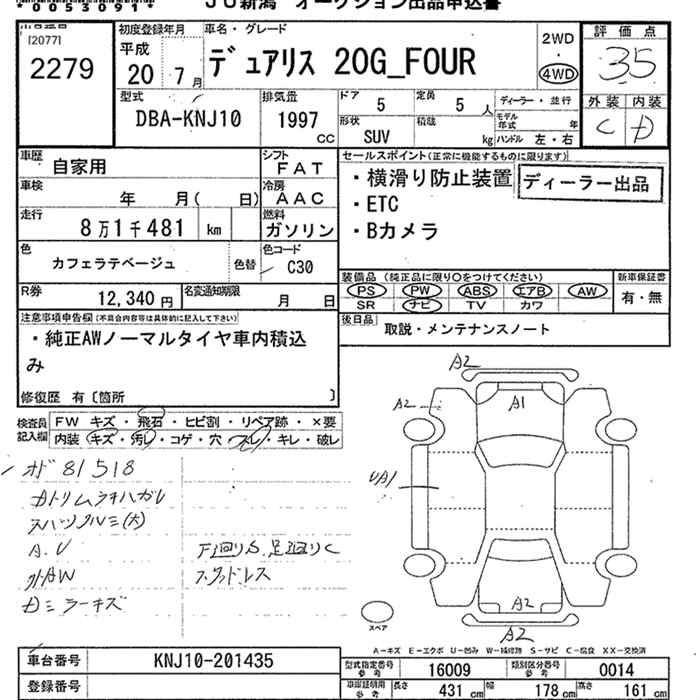 *0053091*
JU新潟 オークション出品申込書
[2077]
2279
初度登録年月
平成
20 7月
車名・グレード
デュアリス 20G_FOUR
2WD
・
4WD
評価点
3.5
外装 内装
C D
型式
DBA-KNJ10
排気量
1997
cc
ドア
5
定員
5 人
ディーラー・並行
形状
SUV
積載
kg
モデル年式 年
ハンドル 左・右
車歴
自家用
シフト
FAT
車検
年 月( 日)
冷房
AAC
走行
8万1千481 km
燃料
ガソリン
色
カフェラテベージュ
色替
色コード
C30
R券
12,340円
名変通知期限
月 日
セールスポイント(正常に機能するものに限ります)
・横滑り防止装置
・ETC
・Bカメラ
ディーラー出品
装備品 (純正品に限り○をつけてください)
PS PW ABS エアB AW
SR ナビ TV カワ
新車保証書
有・無
後日品
取説・メンテナンスノート
注意事項申告欄(不具合内容等は具体的に記入して下さい)
・純正AWノーマルタイヤ車内積込
み
修復歴 有〔箇所 〕
検査員
記入欄
FW キズ・飛石・ヒビ割・リペア跡・×要
内装 キズ・汚レ・コゲ・穴・スレ・キレ・破レ
81518
A.U
下回りS、足回りC
スタッドレス
外AW
Dミラーキズ
A2
A1
A2
UA1
A2
A2
スペア
A-キズ E-エクボ U-凹み W-補修跡 S-サビ C-腐食 XX-交換済
車台番号
KNJ10-201435
登録番号
型式指定番号
参考
16009
類別区分番号
参考
0014
車庫証明用
参考
長さ
431 cm
幅
178 cm
高さ
161 cm